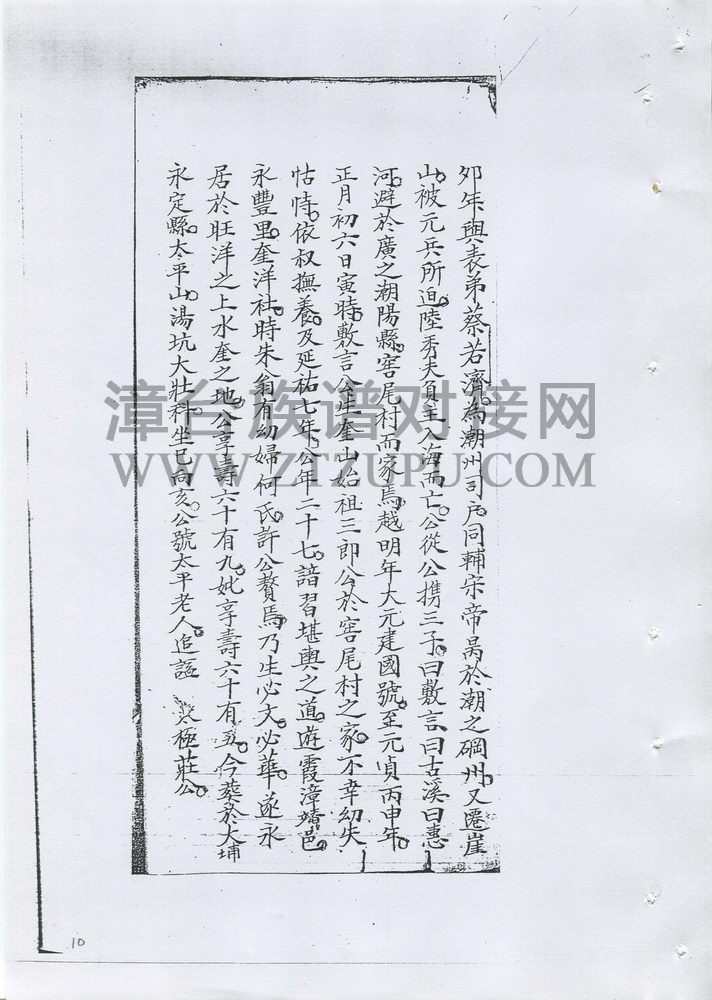 夘年與表弟蔡若濟為潮州司戶同輔宋帝昺於潮之碙州又遷崖
山被元兵所迫陸秀夫負主入海而亡公從公携三子曰敷言曰古溪曰惠
河避於廣之潮陽縣窖尾村而家焉越明年大元建國號至元貞丙申年
正月初六日寅時敷言公生奎山始祖三郎公於窖尾村之家不幸幼失
怙恃依叔撫養及延祐七年公年二十七諳習堪輿之道遊霞漳靖邑
永豐里奎洋社時朱翁有幼婦何氏許公贅焉乃生必文必華遂永
居於旺洋之上水奎之地公享壽六十有九妣享壽六十有五今葬於大埔
永定縣太平山湯坑大壯科坐巳向亥公號太平老人追謚 太極莊公
漳台族谱对接网
WWW.ZTZUPU.COM
10